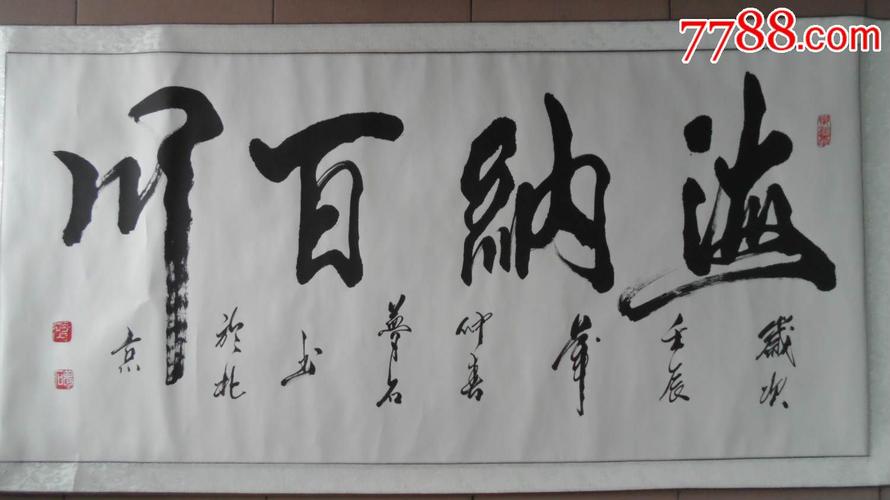 7788.com
海纳百川
岁次
壬辰
年
仲春
梦石
书
於北
京